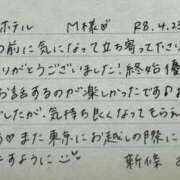 ホテル M様♡ R8.4.23
の前に気になって立ち寄ってださい
りがとうございました!終始優
お話するのが楽しかったですが
したが気持ち良くなってもらえ
う♡また東京にお越しの際に
ますように
新條